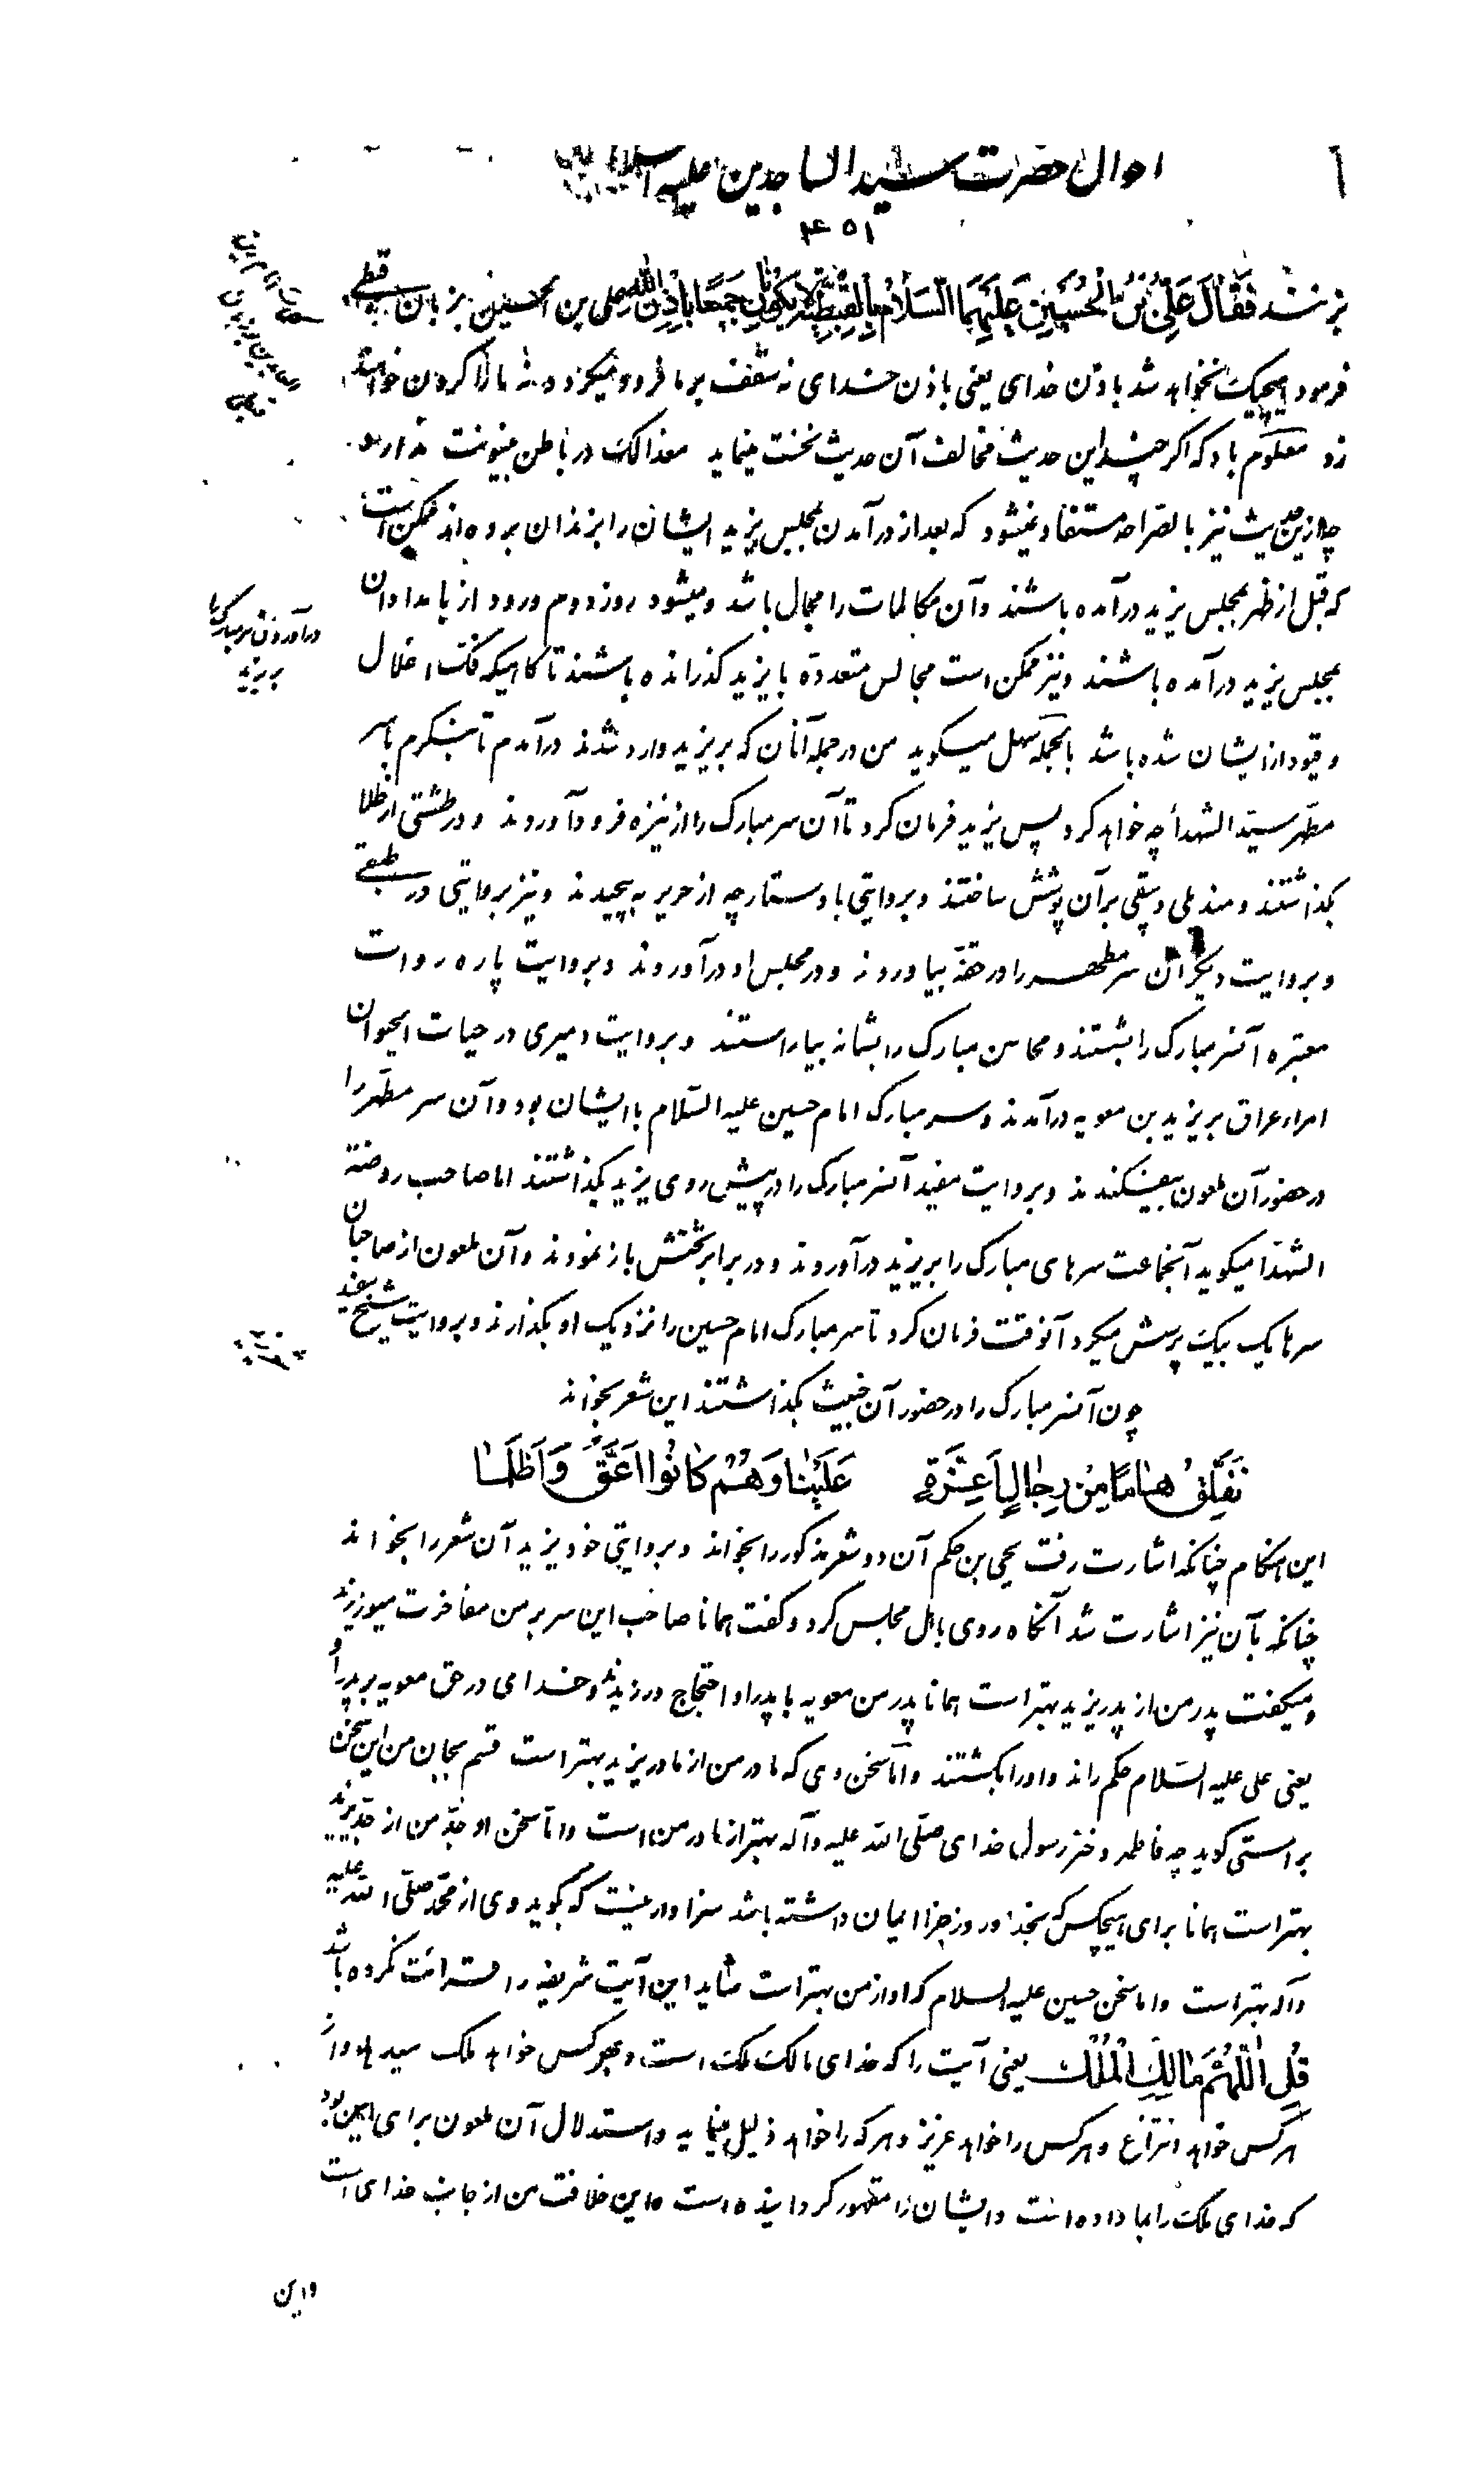 احوال حضرت سید الساجدین علیه السلام
۴۵۱
بزنند فَقَالَ عَلِیُّ بْنُ الْحُسَیْنِ عَلَیْهِمَا السَّلَامُ بِالْقِبْطِیَّةِ لَا یَکُونَانِ جَمِیعًا بِاِذْنِ اللهِ علی بن الحسین بزبان قبطی
فرمود هیچیک نخواهد شد باذن خدای یعنی باذن خدای نه سقف بر ما فرود میگردد نه ما را گردن خواهند
زد معلوم باد که اگر چند این حدیث مخالف آن حدیث نخست مینماید معذالک در باطن بینونت ندارد
چه ازین حدیث نیز بالصراحه مستفاد نمیشود که بعد از درآمدن بمجلس یزید ایشان را بزندان برده‌اند ممکن است
که قبل از ظهر بمجلس یزید درآمده باشند و آن مکالمات را مجال باشد و میشود روز دوم ورود از بامدادان
بمجلس یزید درآمده باشند و نیز ممکن است مجالس متعدده با یزید گذرانده باشند تا گاهیکه فکّ اغلال
و قیود از ایشان شده باشد بالجمله سهل میگوید من در جمله آنان که بر یزید وارد شدند درآمدم تا بنگرم با سر
مطهر سید الشهداء چه خواهد کرد پس یزید فرمان کرد تا آن سر مبارک را از نیزه فرود آوردند و در طشتی از طلا
بگذاشتند و مندیلی دبیقی بر آن پوشش ساختند و بروایتی با دستارچه از حریر به پیچیدند و نیز بروایتی در طبقی
و بروایت دیگر آن سر مطهر را در حقه بیاوردند و در مجلس او درآوردند و بروایت پاره روات
معتبره آنسر مبارک را بشستند و محاسن مبارک را بشانه بیاراستند و بروایت دمیری در حیات الحیوان
امراء عراق بر یزید بن معویه درآمدند و سر مبارک امام حسین علیه السّلام با ایشان بود و آن سر مطهر را
در حضور آن ملعون بیفکندند و بروایت مفید آنسر مبارک را در پیش روی یزید بگذاشتند اما صاحب روضة
الشهدا میگوید آنجماعت سرهای مبارک را بر یزید درآوردند و در برابر تختش باز نمودند و آن ملعون از صاحبان
سرها یک بیک پرسش میکرد آنوقت فرمان کرد تا سر مبارک امام حسین را نزدیک او بگذارند و بروایت شیخ مفید
چون آنسر مبارک را در حضور آن خبیث بگذاشتند این شعر بخواند
نُفَلِّقُ هٰامًا مِنْ رِجٰالٍ اَعِزَّةٍ عَلَیْنٰا وَهُمْ کٰانُوا اَعَقَّ وَاَظْلَمٰا
این هنگام چنانکه اشارت رفت یحیی بن حکم آن دو شعر مذکور را بخواند و بروایتی خود یزید آن شعر را بخواند
چنانکه بآن نیز اشارت شد آنگاه روی باهل مجلس کرد و گفت همانا صاحب این سر بر من مفاخرت میورزید
و میگفت پدر من از پدر یزید بهتر است همانا پدر من معویه با پدر او احتجاج ورزید و خدای در حق معویه بر پدر او
یعنی علی علیه السّلام حکم راند و او را بکشتند و امّا سخن وی که مادر من از مادر یزید بهتر است قسم بجان من این سخن
براستی گوید چه فاطمه دختر رسول خدای صلّی الله علیه و آله بهتر از مادر من است و امّا سخن او جدّ من از جدّ یزید
بهتر است همانا برای هیچکس که بخدا و روز جزا ایمان داشته باشد سزاوار نیست که بگوید وی از محمّد صلّی الله علیه
و آله بهتر است و اما سخن حسین علیه السلام که او از من بهتر است شاید این آیت شریفه را قرائت نکرده باشد
قُلِ اللّٰهُمَّ مٰالِکَ الْمُلْکِ یعنی آیت را که خدای مالک ملک است و بهر کس خواهد ملک میدهد و از
هر کس خواهد انتزاع و هر کس را خواهد عزیز و هر که را خواهد ذلیل مینماید و استدلال آن ملعون برای این بود
که خدای ملک را بما داده است و ایشان را مقهور گردانیده است و این خلافت من از جانب خدای است
و این
درآوردن سر مبارک را
بر یزید